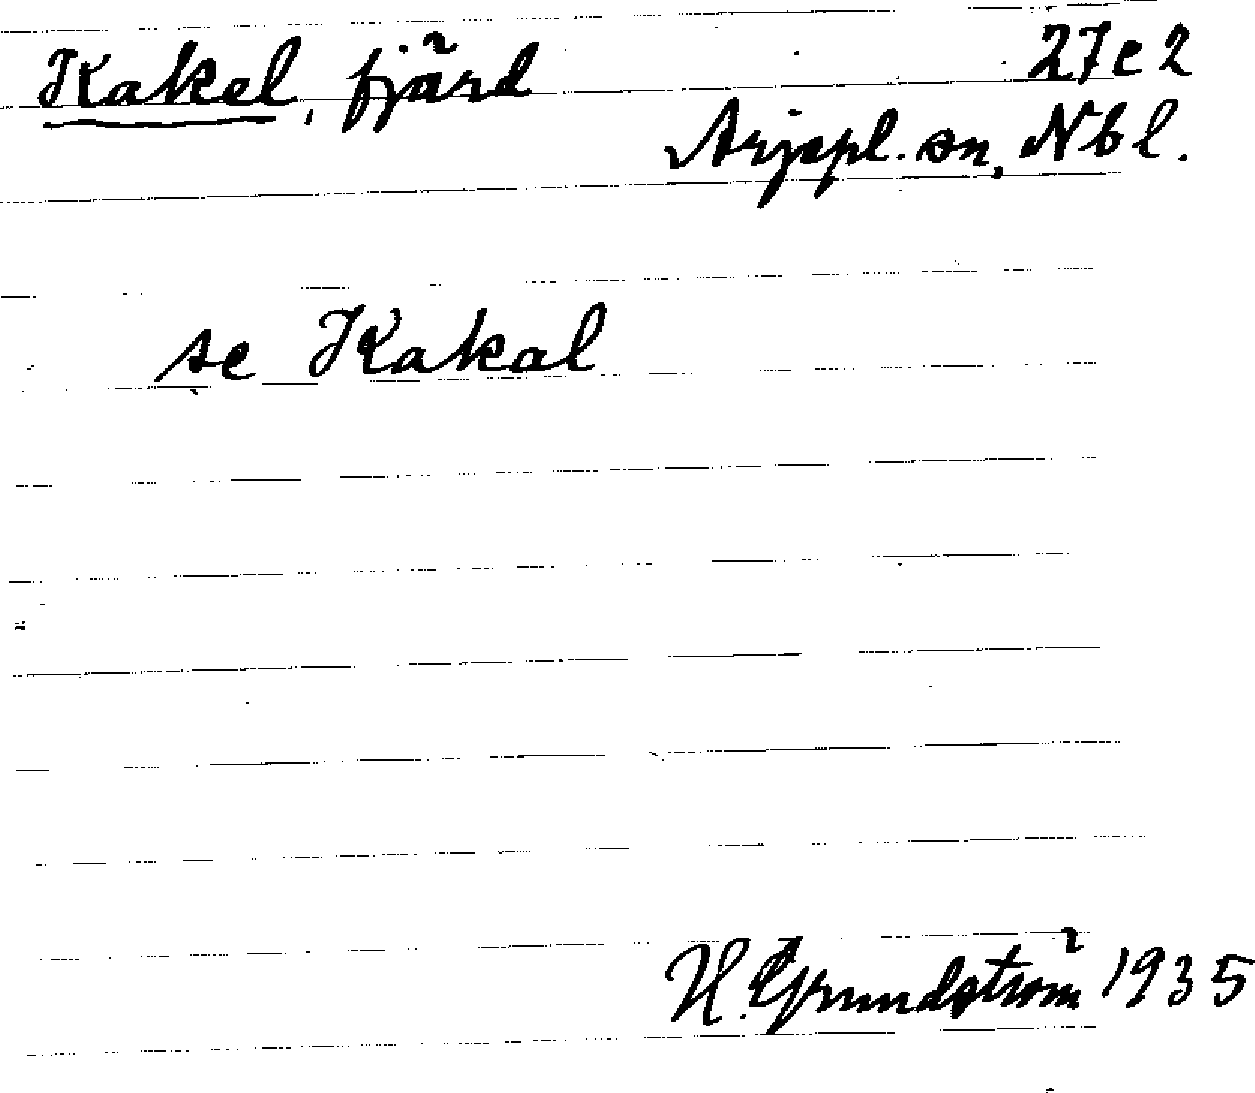 Kakel, fjärd 27e2
Arjepl. sn, Nbl.
se Kakal
H. Grundström 1935